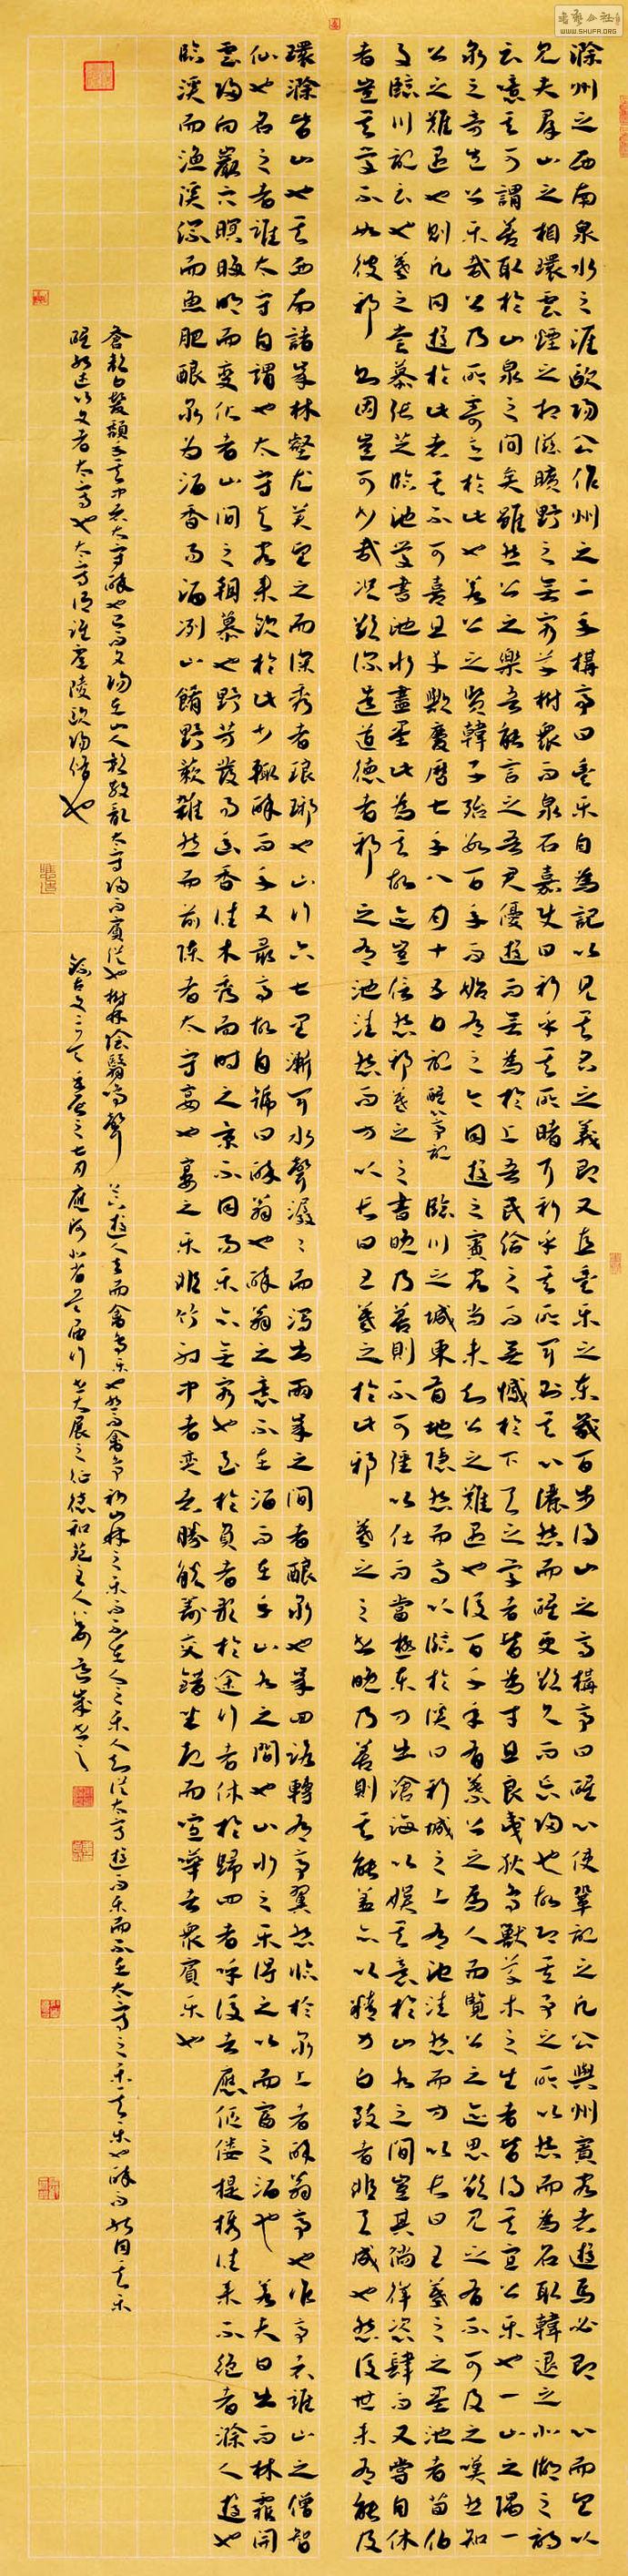 滁州之西南泉水之涯歐陽公作州之二年構亭曰豐樂自為記以見其名之義既又直豐樂之東幾百步得山之高構亭曰醒心使鞏記之凡公與州賓客者遊焉必即心而望以
見夫群山之相環雲煙之相滋曠野之無窮草樹眾而泉石嘉使目新乎其所睹耳新乎其所聞則其心灑然而醒更欲久而忘歸也故即其事之所以然而為名取韓退之北湖之詩
云噫其可謂善取於山泉之間矣雖然公之樂吾能言之吾君優遊而無為於上吾民給足而無憾於下天之學者皆為才且良夷狄鳥獸草木之生者皆得其宜公樂也一山之隅一
泉之旁豈公樂哉公乃所寄意於此也若公之賢韓子歿數百年而始有之今同遊之賓客尚未知公之難遇也後百千年有慕公之為人而覽公之迹思欲見之有不可及之嘆然知
公之難遇也則凡同遊於此者其不可喜且幸歟慶曆七年八月十五日記醒心亭記臨川之城東有地隱然而高以臨於溪曰新城之上有池窪然而方以長曰王羲之之墨池者荀伯
子臨川記云也羲之嘗慕張芝臨池學書池水盡黑此為其故迹豈信然邪羲之之書晚乃善則不可強以仕而嘗極東方出滄海以娛其意於山水之間豈其徜徉恣肆而又嘗自休
者豈其學不如彼邪則固豈可少哉況欲深造道德者邪之有池窪然而方以長曰王羲之於此邪羲之之書晚乃善則其能蓋亦以精力自致者非天成也然後世未有能及
環滁皆山也其西南諸峰林壑尤美望之而深秀者琅琊也山行六七里漸聞水聲潺潺而瀉出兩峰之間者釀泉也峰回路轉有亭翼然臨於泉上者醉翁亭也作亭者誰山之僧智
仙也名之者誰太守自謂也太守與客來飲於此少輒醉而年又最高故自號曰醉翁也醉翁之意不在酒而在乎山水之間也山水之樂得之心而寓之酒也若夫日出而林霏開
雲歸而巖穴暝晦明而變化者山間之朝暮也野芳發而幽香佳木秀而時之景不同而樂亦無窮也至於負者歌於途行者休於者呼後者應傴僂提攜往來不絕者滁人遊也
臨溪而漁溪深而魚肥釀泉為酒香而酒冽山餚野蔌雜然而前陳者太守宴也宴之樂非竹射中者弈者勝觥籌交錯坐起而喧嘩者眾賓樂也
蒼顏白髮頹乎其中者太守醉也已而夕陽在山人影散亂太守歸而賓從也樹林陰翳鳴聲遊人去而禽鳥樂也然而禽鳥知山林之樂而不知人之樂人知從太守遊而樂而不知太守之樂其樂也醉而能同其樂
醒能述以文者太守也太守謂誰廬陵歐陽修也
錄古文三
WWW.SHUFA.ORG